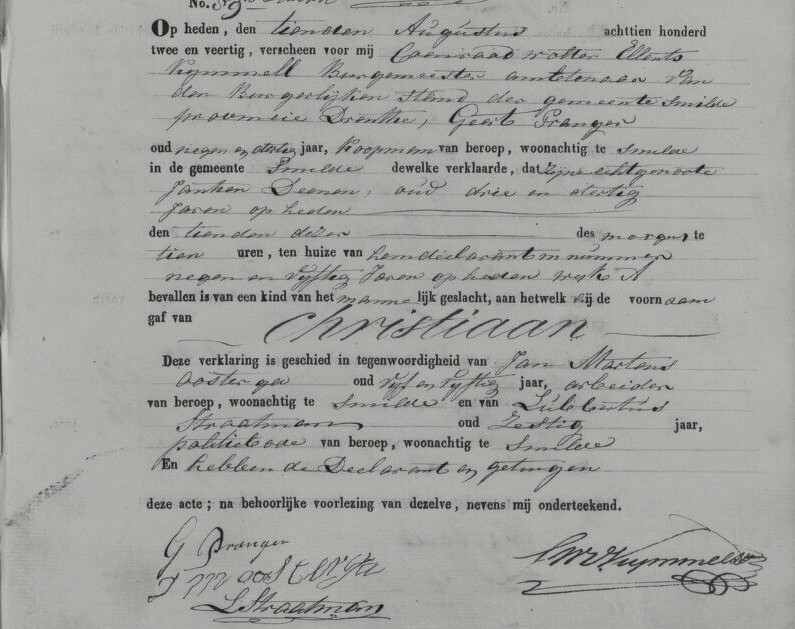 No. 89
Op heden, den tienden Augustus achttien honderd
twee en veertig, verscheen voor mij Coenraad Wolter Ellents
Kijmmell Burgemeester ambtenaar van
den Burgerlijken stand der gemeente Smilde
provincie Drenthe, Geert Pranger
oud negen en dertig jaar, Koopman van beroep, woonachtig te Smilde
in de gemeente Smilde dewelke verklaarde, dat zijne echtgenoote
Jantien Deenen, oud drie en dertig
Jaren op heden
den tienden dezer des morgens te
tien uren, ten huize van hem declarant in nummer
negen en vijftig Jaren op heden wijk A
bevallen is van een kind van het manne lijk geslacht, aan hetwelk hij de voornaam
gaf van Christiaan
Deze verklaring is geschied in tegenwoordigheid van Jan Martens
oosterga oud vijf en vijftig jaar, arbeider
van beroep, woonachtig te Smilde en van Lubbertus
Straatman oud Zestig jaar,
politiebode van beroep, woonachtig te Smilde
En hebben de Declarant en getuigen
deze acte; na behoorlijke voorlezing van dezelve, nevens mij onderteekend.
G Pranger
L Straatman